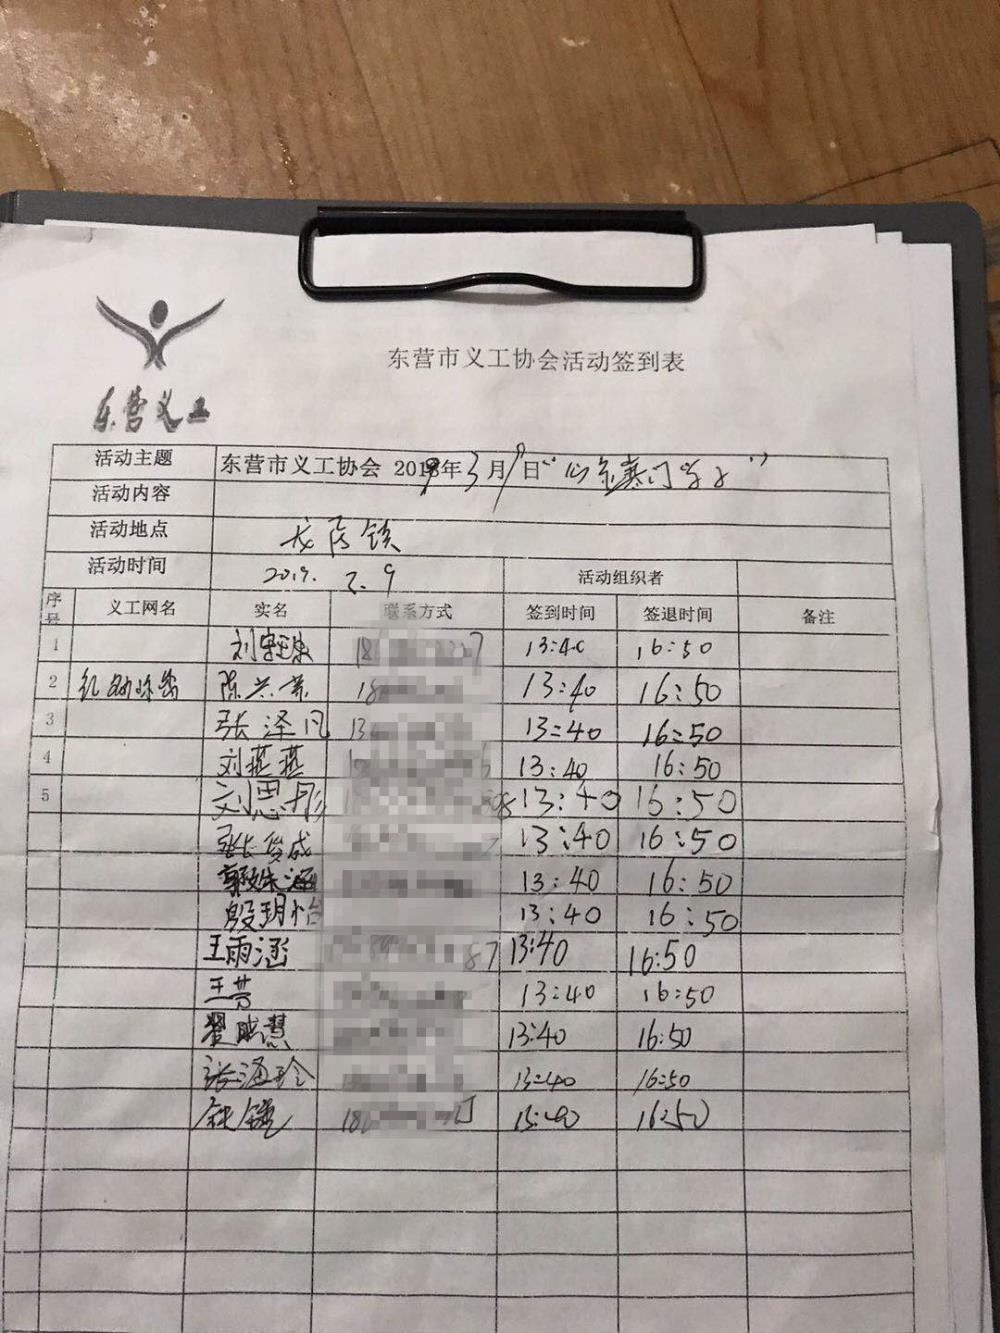 东营义工
东营市义工协会活动签到表
活动主题 东营市义工协会 2019年3月9日“心系寒门学子”
活动内容
活动地点 龙居镇
活动时间 2019. 3. 9 活动组织者
序号 义工网名 实名 联系方式 签到时间 签退时间 备注
1 刘 18 7 13:40 16:50
2 陈 18 13:40 16:50
3 张泽凡 13 13:40 16:50
4 刘燕燕 13:40 16:50
5 刘思彤 13:40 16:50
张俊成 13:40 16:50
郭姝涵 13:40 16:50
殷玥怡 13:40 16:50
王雨涵 87 13:40 16:50
王芳 13:40 16:50
翟晓慧 13:40 16:50
张海玲 13:40 16:50
18 13:40 16:50